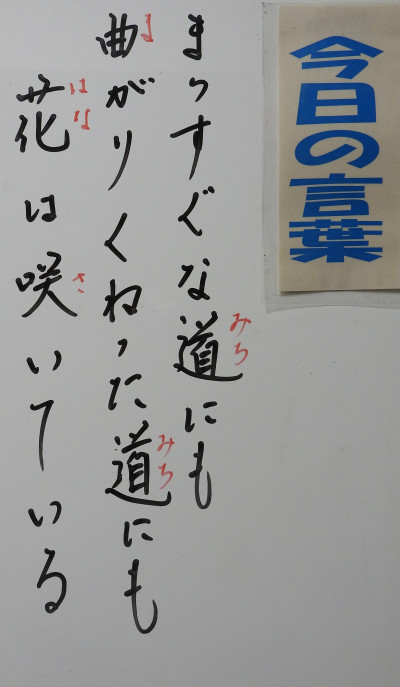 今日の言葉
まっすぐな道にも
みち
曲がりくねった道にも
ま
みち
花は咲いている
はな
さ